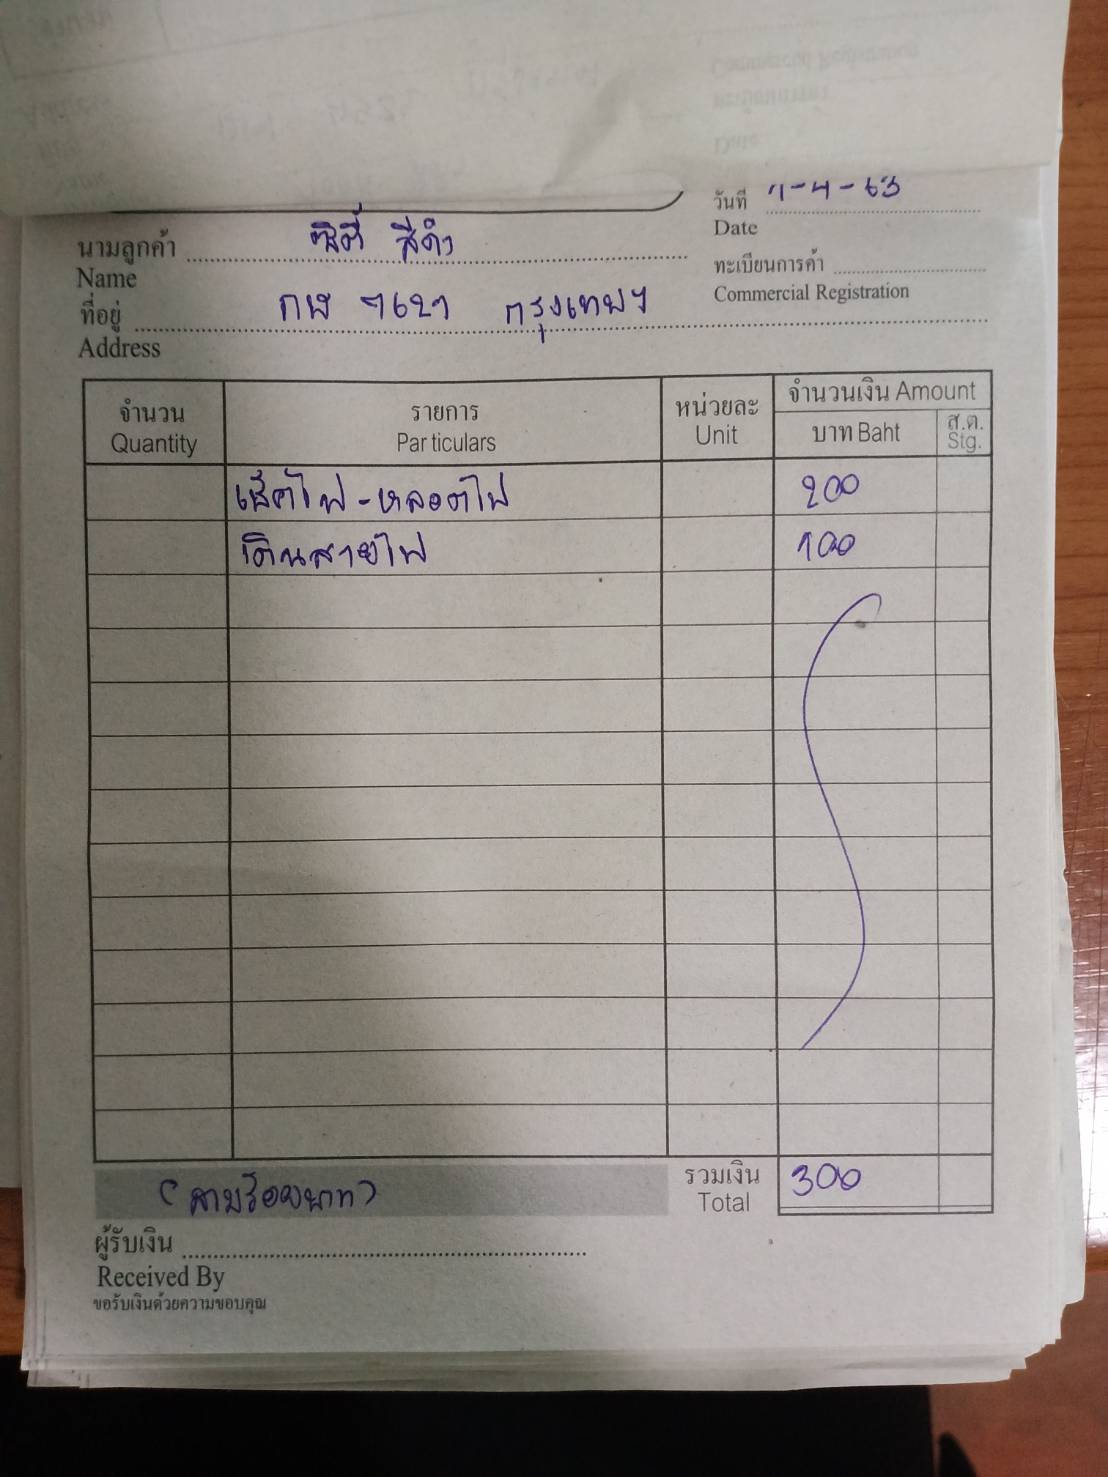 วันที่ ๗-4-63
Date
นามลูกค้า ซิตี้ สีดำ
Name
ทะเบียนการค้า
Commercial Registration
ที่อยู่ กษ ๆ62ๆ กรุงเทพฯ
Address
จำนวน รายการ หน่วยละ จำนวนเงิน Amount
Quantity Particulars Unit บาท Baht ส.ต. Stg.
เช็คไฟ-หลอดไฟ 200
เดินสายไฟ 100
(สามร้อยบาท) รวมเงิน 300
Total
ผู้รับเงิน
Received By
ขอรับเงินด้วยความขอบคุณ